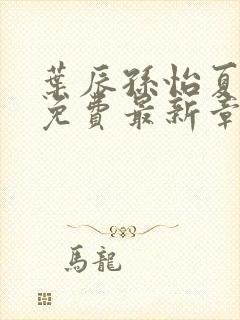 葉辰孫怡夏
免費最新章
馬龍